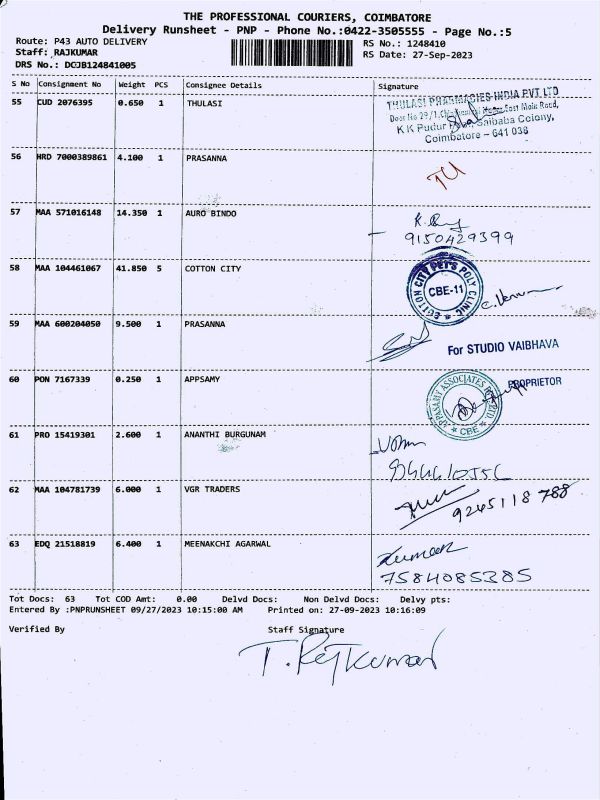 THE PROFESSIONAL COURIERS, COIMBATORE
Delivery Runsheet - PNP - Phone No.:0422-3505555 - Page No.:5
Route: P43 AUTO DELIVERY
RS No.: 1248410
Staff: RAJKUMAR
RS Date: 27-Sep-2023
DRS No.: DCJB124841005
S No Consignment No Weight PCS Consignee Details Signature
55 CUD 2076395 0.650 1 THULASI
THULASI PHARMACIES INDIA PVT LTD
K K Pudur Saibaba Colony,
Coimbatore - 641 038
56 HRD 7000389861 4.100 1 PRASANNA
57 MAA 571016148 14.350 1 AURO BINDO
9150429399
58 MAA 104461067 41.850 5 COTTON CITY
COTTON CITY PET'S POLY CLINIC
CBE-11
59 MAA 600204050 9.500 1 PRASANNA
For STUDIO VAIBHAVA
PROPRIETOR
60 PON 7167339 0.250 1 APPSAMY
CBE
61 PRO 15419301 2.600 1 ANANTHI BURGUNAM
62 MAA 104781739 6.000 1 VGR TRADERS
9245118788
63 EDQ 21518819 6.400 1 MEENAKCHI AGARWAL
Kumar
7584085385
Tot Docs: 63 Tot COD Amt: 0.00 Delvd Docs: Non Delvd Docs: Delvy pts:
Entered By :PNPRUNSHEET 09/27/2023 10:15:00 AM Printed on: 27-09-2023 10:16:09
Verified By Staff Signature
T. Rajkumar